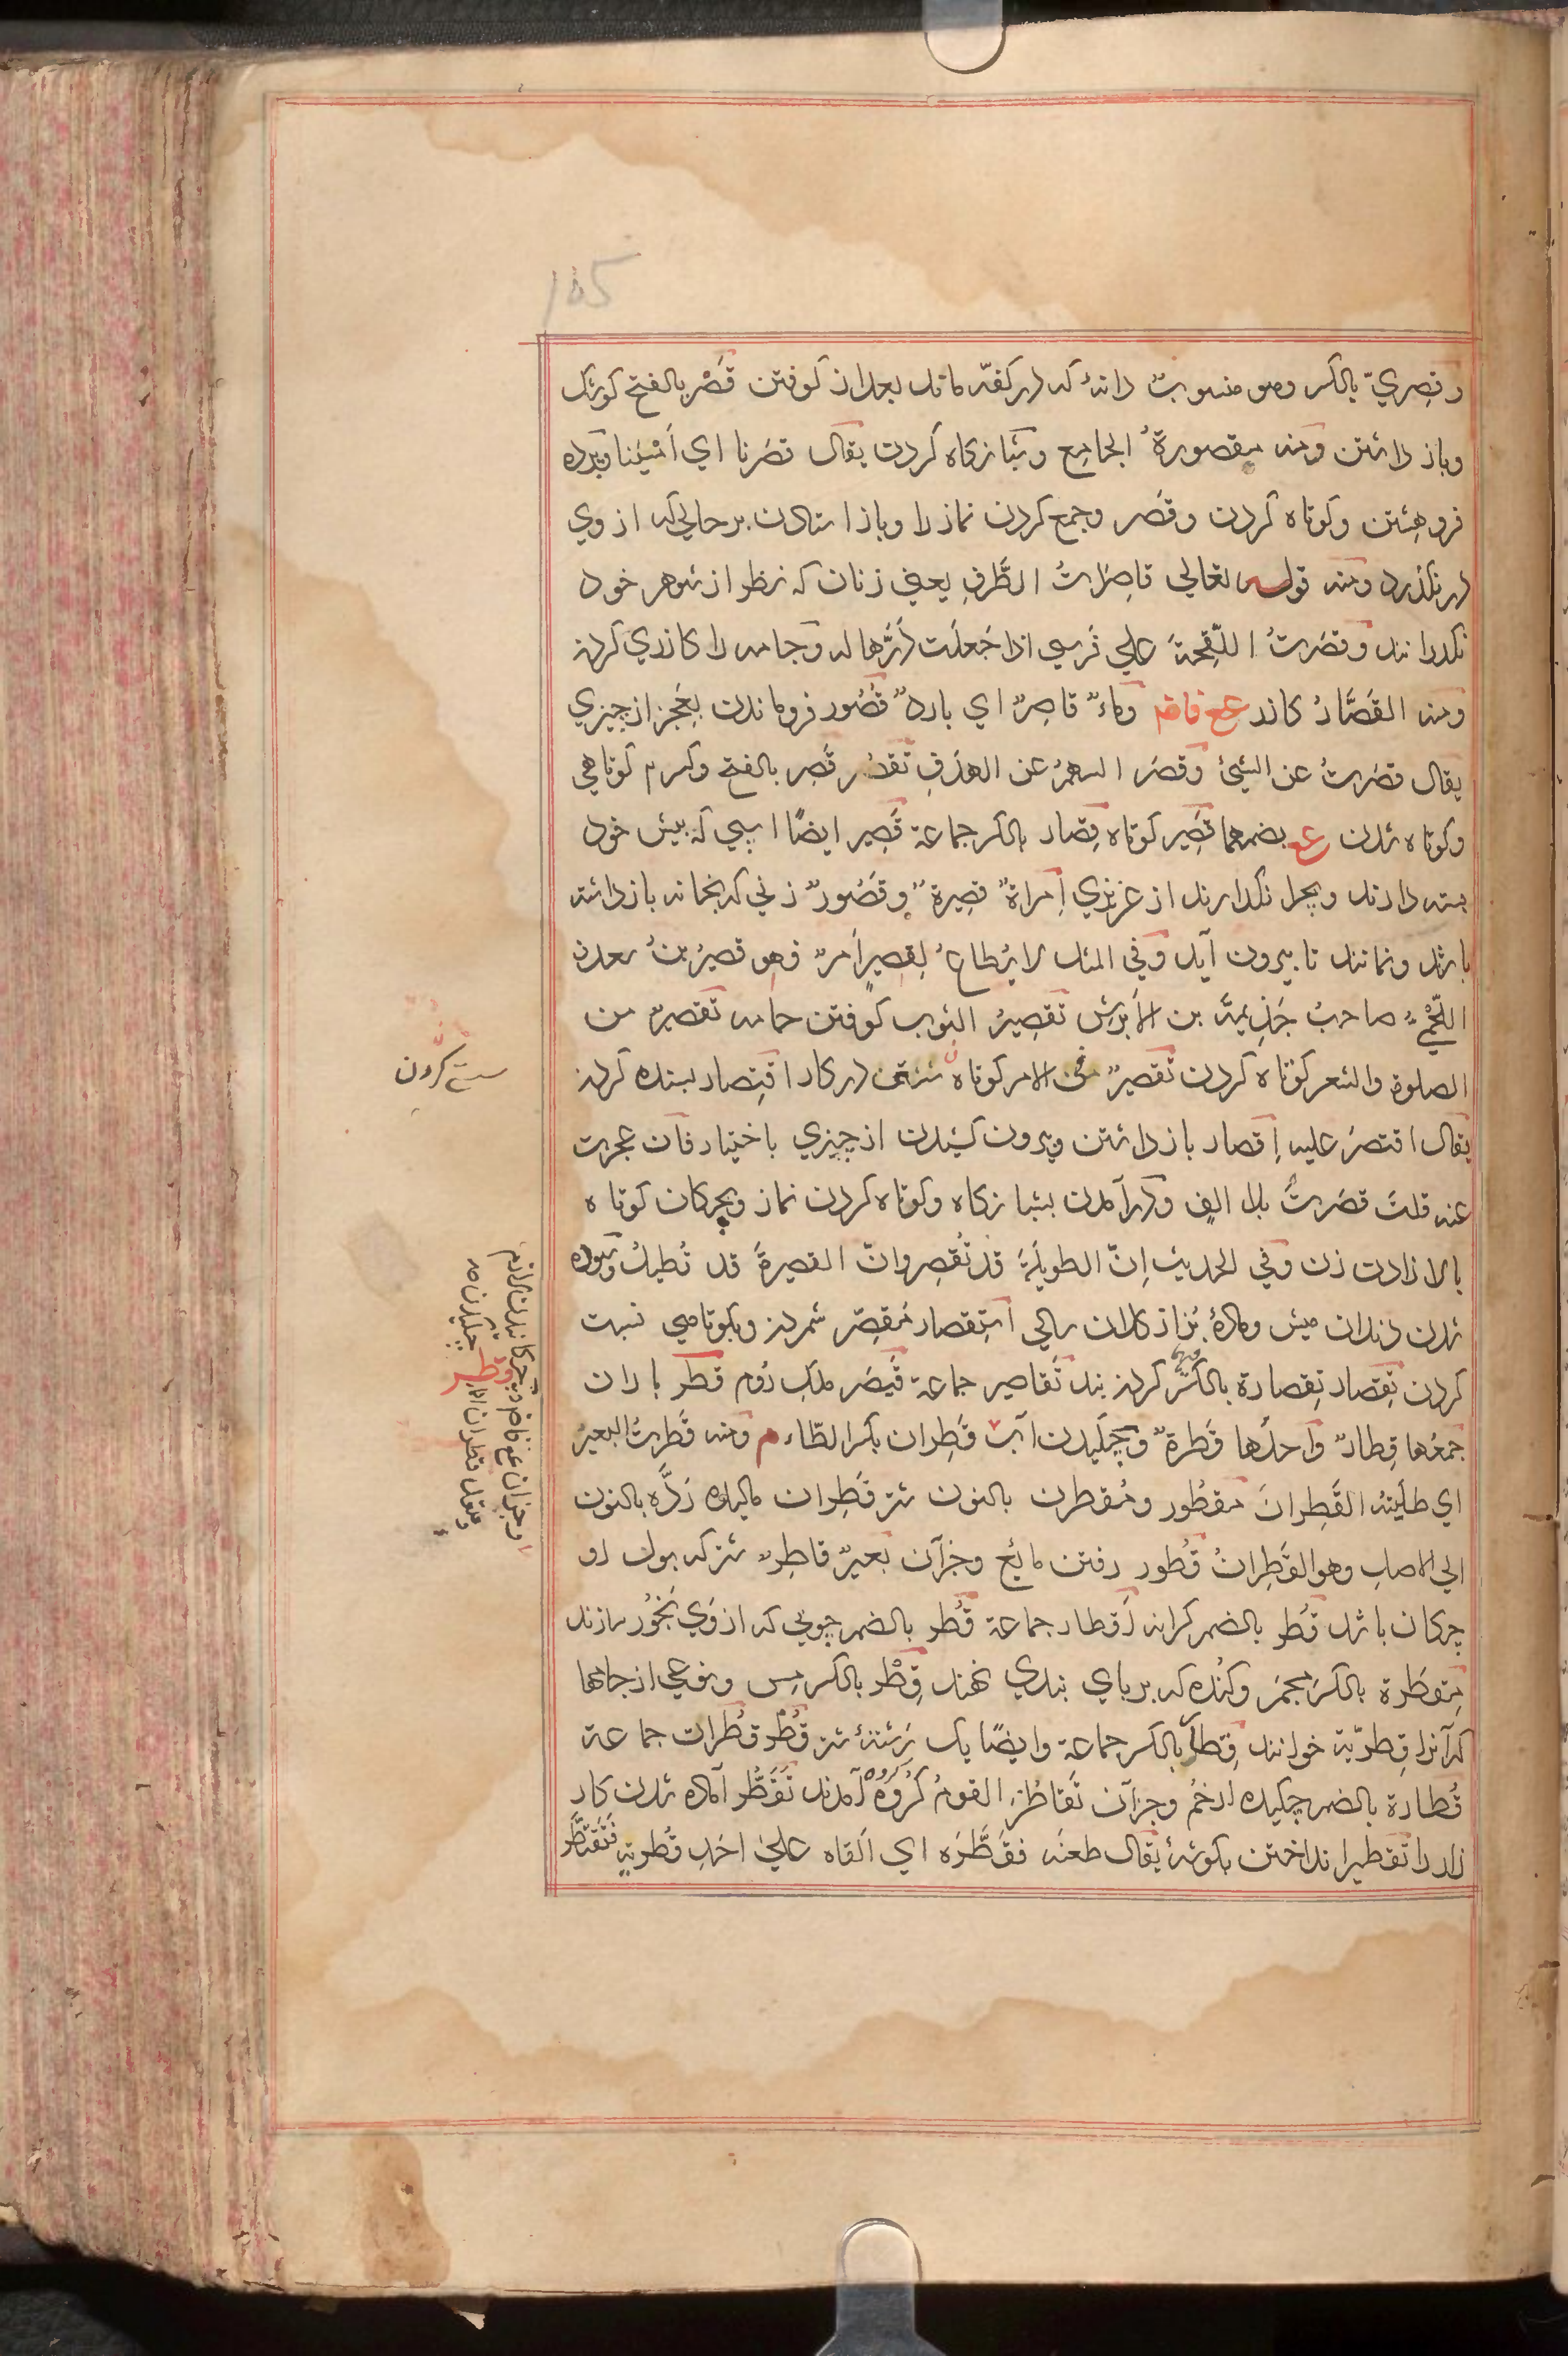 165
وقِصريّ بالكسر وهو منسوبٌ دانهٔ که در کفه ماند بعد از کوفتن قَصْر بالفتح کوشک
وباز داشتن ومنه مقصورةُ الجامع وشبانکاه کردن یقال قصَرنا اي اَمْسَینا وپرده
فروهشتن وکوتاه کردن وقَصر وجمع کردن نماز را وباز استادن بر حالي که از وي
در نکذرد ومنه قوله تعالي قاصِراتُ الطَّرفِ یعني زنان که نظر از شوهر خود
نکذرانند وقصَرتُ اللّقحةَ علي فَرسي اذا جَعلَت دَرَّها له وجامه را کازري کردن
ومنه القَصَّارُ کازر وماءٌ قاصِرٌ اي باردٌ قُصُور فروماندن بعَجز از چیزي
یقال قصَرتُ عن الشيئ وقصَر السهمُ عن الهدَفِ قِصَر بالفتح وکسرم کوتاهي
وکوتاه شدن بضمهما قصِیر کوتاه قِصار بالکسر جماعة قَصِیر ایضًا اسپي که پیش خود
بسته دارند وبچرا نکذارند از عزیزي اِمراةٌ قصِیرةٌ وقَصُورٌ زني که بخانه باز داشته
باشد ونمانند تا بیرون آید وفي المثل لا یُطاعُ لِقصیرٍ اَمرٌ فهو قصیرُ بنُ سعدن
اللَّخْميُّ صاحبُ جَذِیمَةَ بن الاَبرَشِ تقصِیرُ الثوب کوفتن جامه تقصیرٌ من
الصلوة والشعر کوتاه کردن تقصیرٌ في الامر کوتاه در کار اقتِصار بسنده کردن
یقال اقتصَر علیه اِقصار باز داشتن وبیرون کشیدن از چیزي باختیار فان عجزت
عنه قلتَ قصَرتُ بلا الفٍ ودرآمدن بشبانکاه وکوتاه کردن نماز وبچکان کوتاه
بالا زادن زن وفي الحدیث اِنّ الطویلَةَ قد تُقصِر وانّ القصیرةَ قد تُطیلُ وسوده
شدن دندان میش ومادهٔ بُز از کلان سالي استِقصار مُقصِّر شمردن وبکوتاهي نسبت
کردن تِقصار تِقصارة بالکسر کردن بند تَقاصیر جماعة قَیصَر ملک رُوم قَطر باران
جمعُها قِطارٌ واحدُها قَطرةٌ وچکیدن آب قَطِران بکسر الطّاء ومنه قَطرتُ البعیرَ
اي طلَیتُه القَطِرانَ مَقطُور ومُقطرن بالنون شتر قَطِران مالیده رَدَّه بالنون
الي الاصل وهو القَطِرانُ قُطور رفتن مائع وجز آن بَعیرٌ قاطِرٌ شتر که بول او
چکان باشد قُطر بالضم کرانه اَقطار جماعة قُطر بالضم چوبي که از وَي بَخُور سازند
مِقطَرة بالکسر مِجمَر وکُنده که بر پاي بندي نهند قِطْر بالکسر مِس ونوعي از جامها
که آنرا قِطریّة خوانند قِطار بالکسر جماعة وایضًا یک رَستهٔ شتر قُطُر قُطُرات جماعة
قُطارة بالضم چکیده از خُم وجز آن تَقاطُر القومُ کُرُوه کُرُوه آمدند تَقَطُّر آماده شدن کار
زار را تقطیر انداختن بکوشهٔ یقال طعنَه فقَطَّرَه اي اَلقاه علي احَدِ قُطرَیهِ فتَقَطَّر
سست کردن